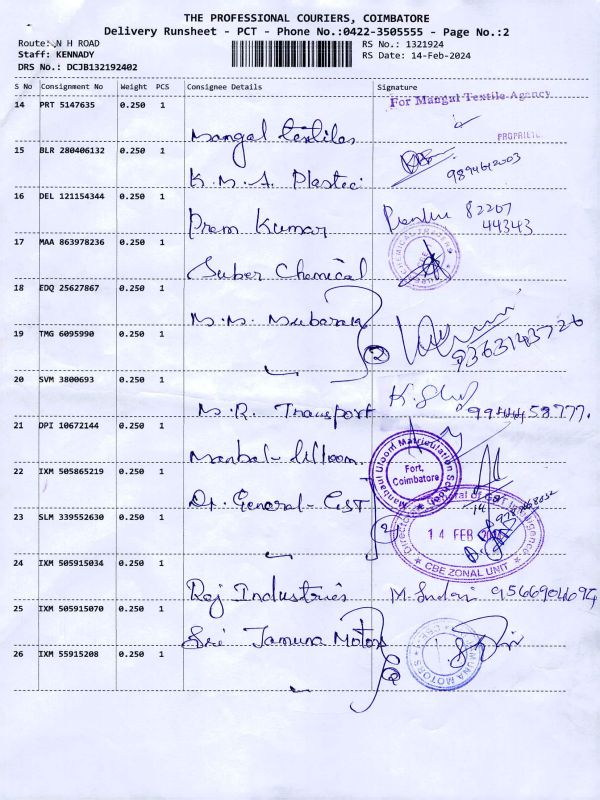 THE PROFESSIONAL COURIERS, COIMBATORE
Delivery Runsheet - PCT - Phone No.:0422-3505555 - Page No.:2
Route: N H ROAD
Staff: KENNADY
DRS No.: DCJB132192402
RS No.: 1321924
RS Date: 14-Feb-2024
S No Consignment No Weight PCS Consignee Details Signature
14 PRT 5147635 0.250 1 Mangal textiles For Mangal Textile Agency
PROPRIETO
15 BLR 280406132 0.250 1 K.M.A. Plastic 9894612003
16 DEL 121154344 0.250 1 Prem Kumar 82207
44343
17 MAA 863978236 0.250 1 Super Chemical
18 EDQ 25627867 0.250 1 M.M. Mubarak
19 TMG 6095990 0.250 1 2 9363143726
20 SVM 3800693 0.250 1 M.R. Transport
21 DPI 10672144 0.250 1 Manbal-Ulloom Manbaul Uloom Matriculation School
Fort,
Coimbatore
22 IXM 505865219 0.250 1 Dt. General - GST
23 SLM 339552630 0.250 1 2 14 FEB
CBE ZONAL UNIT
24 IXM 505915034 0.250 1 Raj Industries
25 IXM 505915070 0.250 1 Sri Jamuna Motors JAMUNA MOTORS
26 IXM 55915208 0.250 1